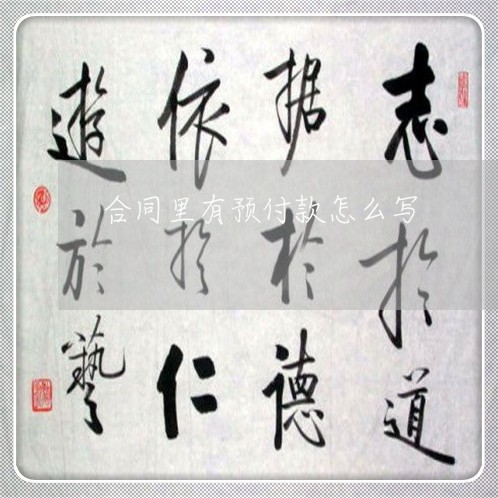 志於道
据於德
依於仁
遊於藝
合同里有预付款怎么写